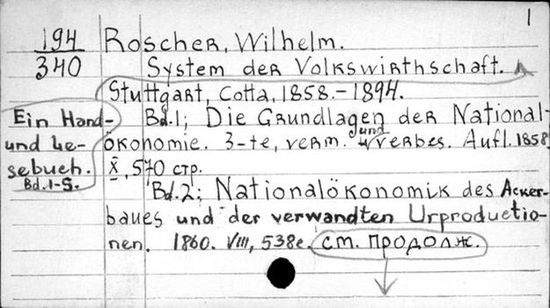 1
194 Roscher, Wilhelm.
340 System der Volkswirthschaft.
Stuttgart, Cotta, 1858.-1894.
Ein Hand- Bd.1; Die Grundlagen der National-
und Le- ökonomie. 3-te, verm. und verbes. Aufl. 1858
sebuch. X, 570 стр.
Bd.1-5. Bd.2; Nationalökonomik des Acker-
baues und der verwandten Urproductio-
nen. 1860. VIII, 538 с. см. продолж.